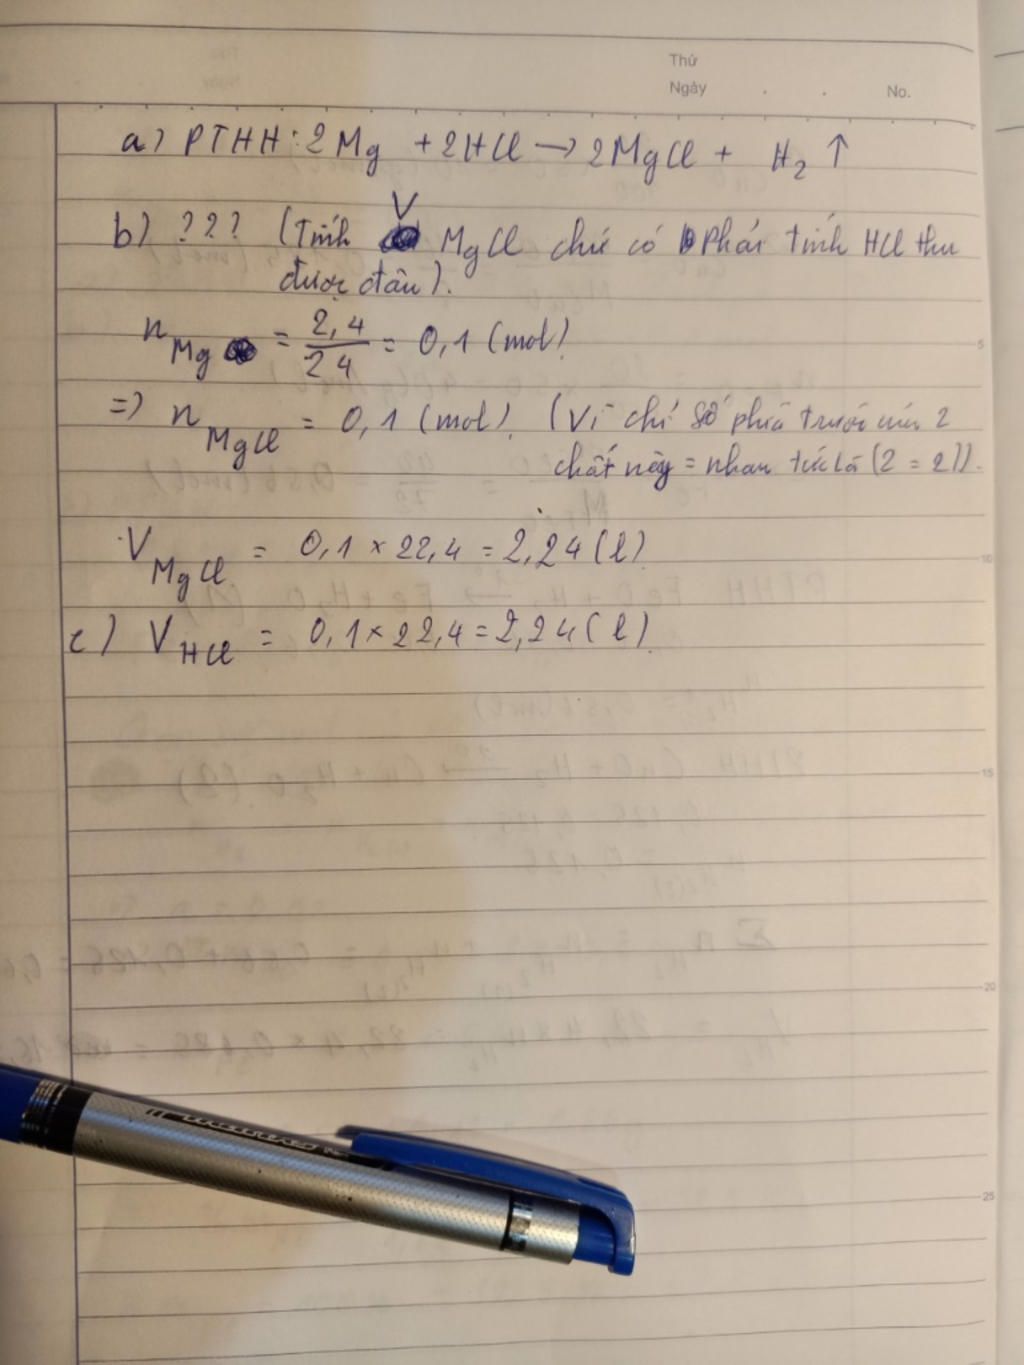 Thứ
Ngày No.
a) PTHH: 2Mg + 2HCl → 2MgCl + H2 ↑
V
b) ??? (Tính MgCl chứ có phải tính HCl thu
được đâu).
n Mg = 2,4/24 = 0,1 (mol)
5
=> n MgCl = 0,1 (mol). (Vì chỉ số phía trước 2
chất này = nhau tức là (2 = 2)).
V MgCl = 0,1 × 22,4 = 2,24 (l)
10
c) V HCl = 0,1 × 22,4 = 2,24 (l).
15
20
25